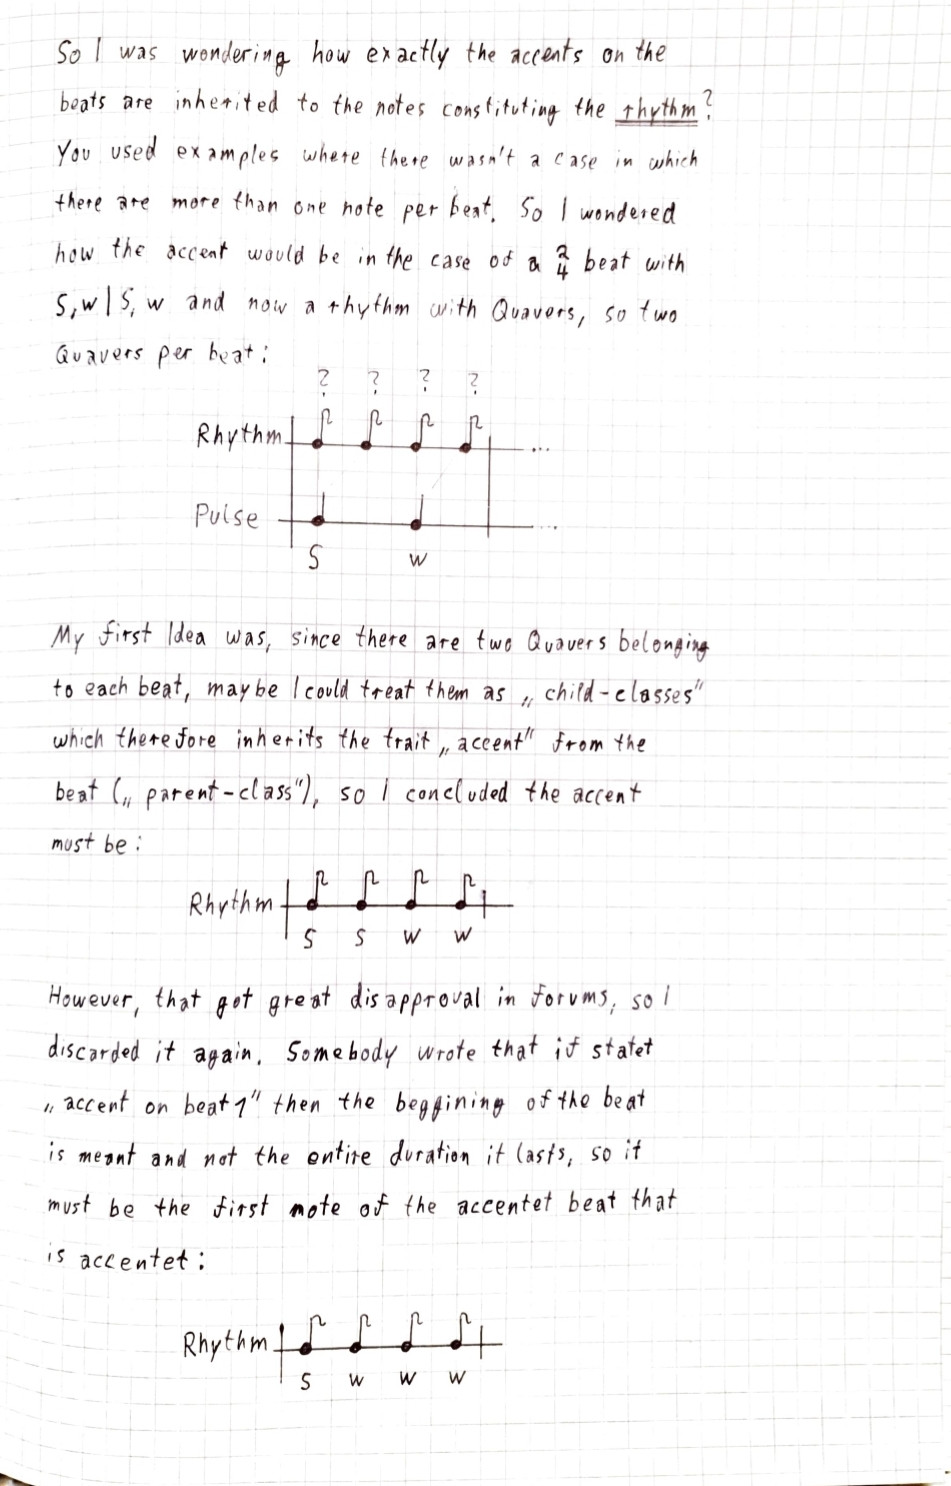 So I was wondering how exactly the accents on the
beats are inherited to the notes constituting the rhythm?
You used examples where there wasn't a case in which
there are more than one note per beat. So I wondered
how the accent would be in the case of a 2/4 beat with
S, W | S, W and now a rhythm with Quavers, so two
Quavers per beat:
? ? ? ?
Rhythm ...
Pulse ...
S W
My first Idea was, since there are two Quavers belonging
to each beat, maybe I could treat them as „child-classes"
which therefore inherits the trait „accent" from the
beat („parent-class"), so I concluded the accent
must be:
Rhythm
S S W W
However, that got great disapproval in forums, so I
discarded it again. Somebody wrote that if statet
„accent on beat 1" then the beggining of the beat
is meant and not the entire duration it lasts, so it
must be the first note of the accentet beat that
is accentet:
Rhythm
S W W W